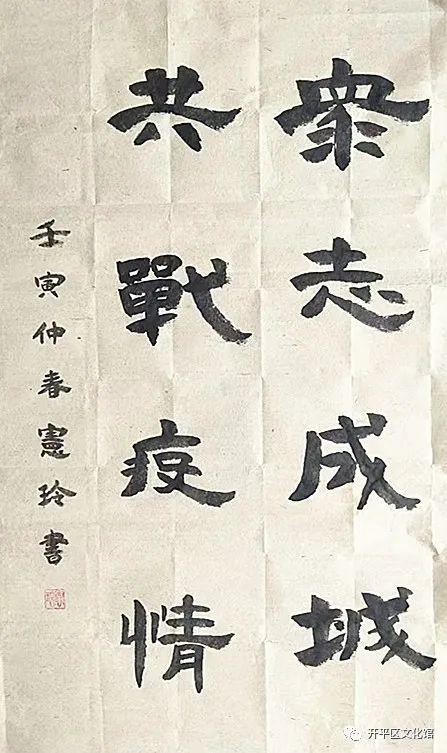 衆志成城
共戰疫情
壬寅仲春憲玲書
开平区文化馆